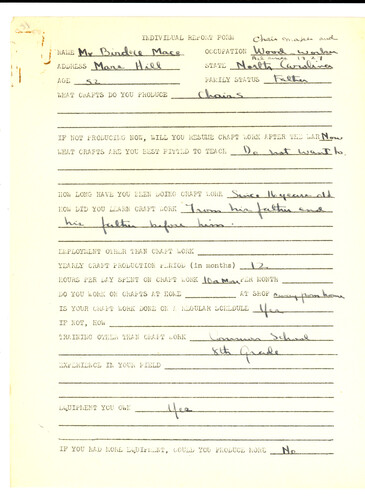 INDIVIDUAL REPORT FORM Chair maker and
NAME Mr Birdie Mace OCCUPATION Wood-worker
ADDRESS Mars Hill STATE North Carolina
AGE 52 FAMILY STATUS Father
WHAT CRAFTS DO YOU PRODUCE Chairs
IF NOT PRODUCING NOW, WILL YOU RESUME CRAFT WORK AFTER THE WAR Now
WHAT CRAFTS ARE YOU BEST FITTED TO TEACH Do not want to
HOW LONG HAVE YOU BEEN DOING CRAFT WORK Since 16 years old
HOW DID YOU LEARN CRAFT WORK From his father and
his father before him.
EMPLOYMENT OTHER THAN CRAFT WORK
YEARLY CRAFT PRODUCTION PERIOD (In months) 12
HOURS PER DAY SPENT ON CRAFT WORK 10 PER MONTH
DO YOU WORK ON CRAFTS AT HOME AT SHOP away from home
IS YOUR CRAFT WORK DONE ON A REGULAR SCHEDULE Yes
IF NOT, HOW
TRAINING OTHER THAN CRAFT WORK Common School
8th Grade
EXPERIENCE IN YOUR FIELD
EQUIPMENT YOU OWN Yes
IF YOU HAD MORE EQUIPMENT, COULD YOU PRODUCE MORE No